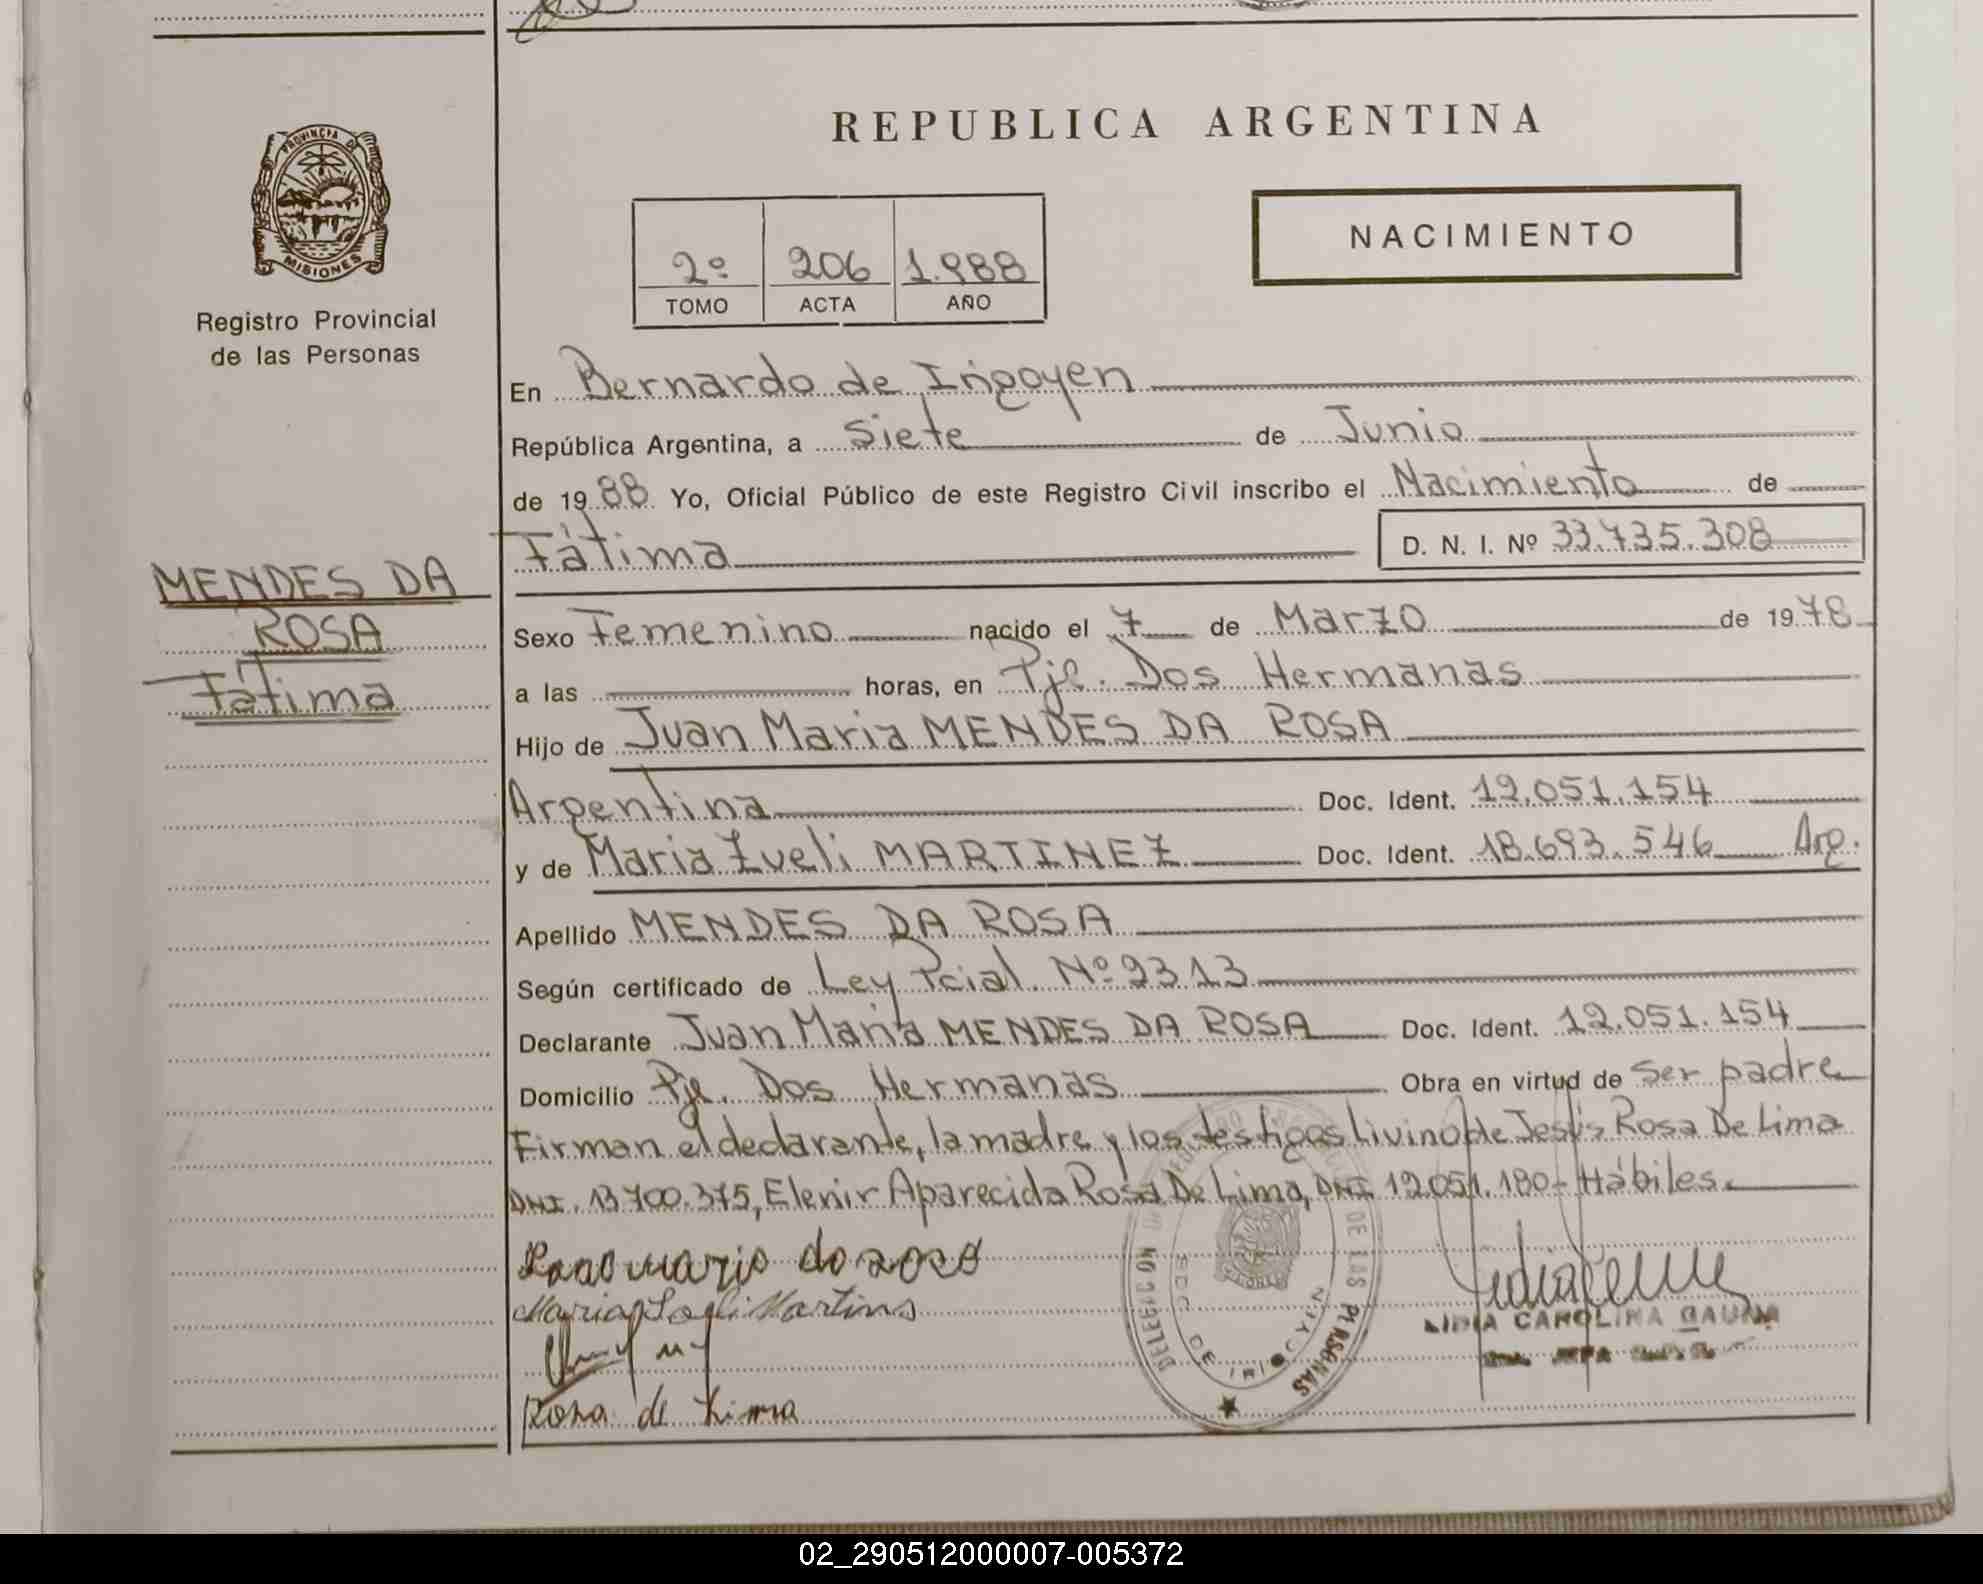 REPUBLICA ARGENTINA
PROVINCIA DE
MISIONES
Registro Provincial
de las Personas
2º 206 1.988
TOMO ACTA AÑO
NACIMIENTO
En Bernardo de Irigoyen
República Argentina, a Siete de Junio
de 1988 Yo, Oficial Público de este Registro Civil inscribo el Nacimiento de
Fátima D. N. I. Nº 33.735.308
MENDES DA
ROSA
Fátima
Sexo Femenino nacido el 7 de Marzo de 1978
a las horas, en Pje. Dos Hermanas
Hijo de Juan Maria MENDES DA ROSA
Argentina Doc. Ident. 12.051.154
y de Maria Zueli MARTINEZ Doc. Ident. 18.693.546 Arg.
Apellido MENDES DA ROSA
Según certificado de Ley Pcial. Nº 2313
Declarante Juan Maria MENDES DA ROSA Doc. Ident. 12.051.154
Domicilio Pje. Dos Hermanas Obra en virtud de Ser padre
Firman el declarante, la madre y los testigos Livino de Jesús Rosa De Lima
DNI. 13700.375, Elenir Aparecida Rosa De Lima, DNI 12051.180- Hábiles.
Maria Martins
Rosa de Lima
DE LAS PERSONAS
DE IRIGOYEN
LIDIA CAROLINA GAUNA
02_290512000007-005372